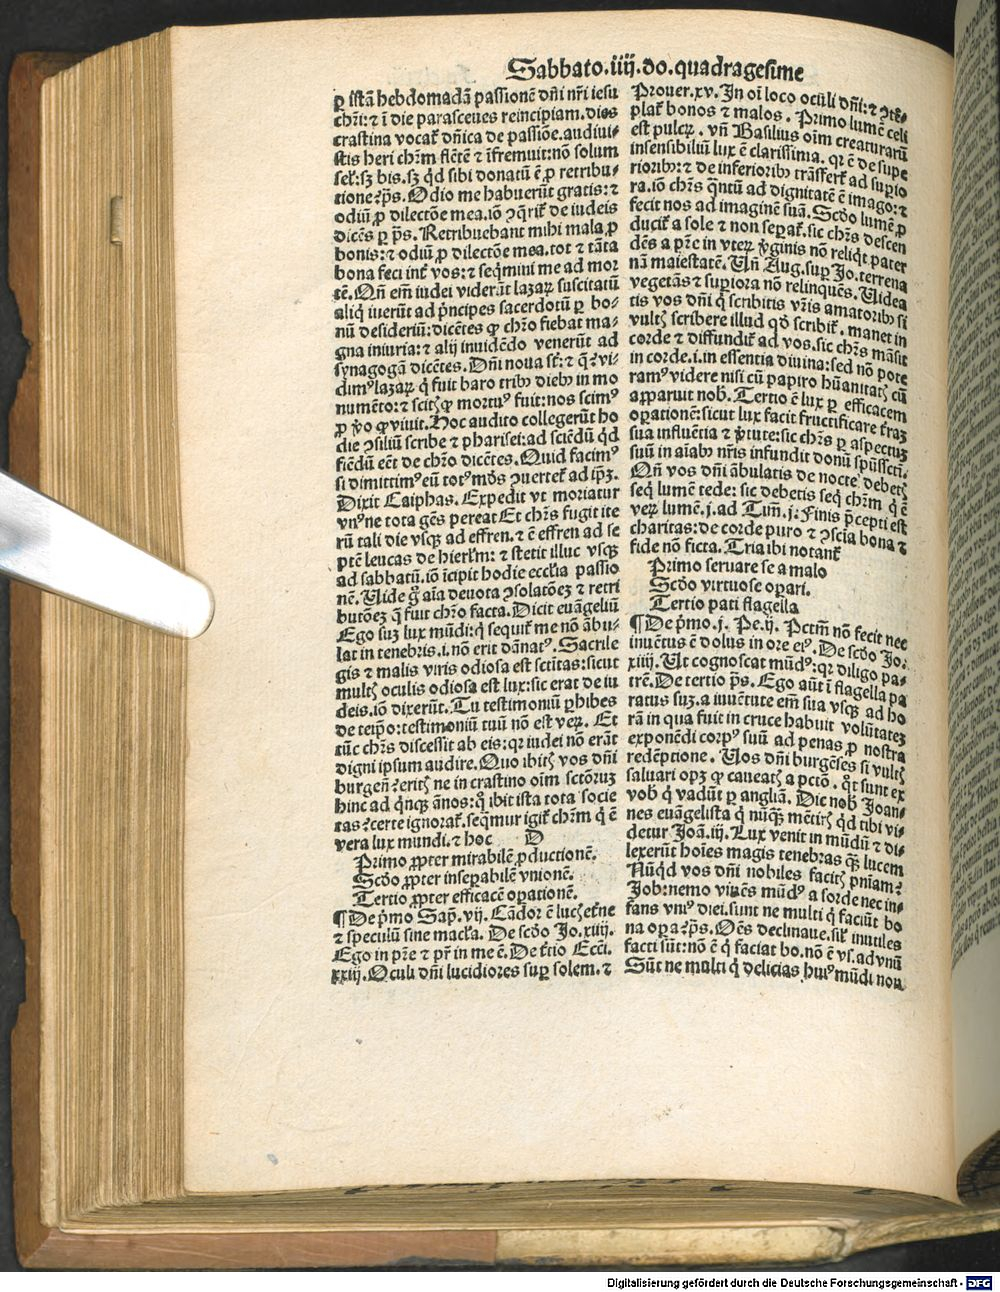 Sabbato.iiij.do.quadragesime
ꝑ istã hebdomadã passionẽ dñi nr̃i iesu
chr̃i:⁊ ĩ die parasceues reincipiam.dies
crastina vocat᷑ dñica de passiõe.audiui-
stis heri chr̃m flẽtẽ ⁊ ĩfremuit:nõ solum
sel᷑:sꝫ bis.sꝫ qđ sibi donatũ ẽ ꝓ retribu-
tione?p̃s.Odio me habuerũt gratis:⁊
odiũ ꝓ dilectõe mea.iõ ꝯq̃rit᷑ de iudeis
dicẽs ꝑ p̃s. Retribuebant mihi mala ꝓ
bonis:⁊ odiũ ꝓ dilectõe mea.tot ⁊ tãta
bona feci int᷑ vos:⁊ seq̃mini me ad mor
tẽ.Qñ em̃ iudei viderũt lazaꝝ suscitatũ
aliq̃ iuerũt ad p̃ncipes sacerdotũ ꝑ bo-
nũ desideriũ:dicẽtes ꝙ chr̃o fiebat ma-
gna iniuria:⁊ alij inuidẽdo venerũt ad
synagogã dicẽtes.Dñi noua st̃:⁊ q̃?vi-
dimꝰ lazaꝝ q̃ fuit baro tribꝰ diebꝰ in mo
numẽto:⁊ scitꝭ ꝙ mortuꝰ fuit:nos scimꝰ
ꝓ ṽo ꝙ viuit.Hoc audito collegerũt ho
die ꝯsiliũ scribe ⁊ pharisei:ad sciẽdũ qđ
fiẽdũ eẽt de chr̃o dicẽtes.Quid facimꝰ
si dimittimꝰ eũ totꝰ mũdꝰ ꝯuertet᷑ ad ip̃ꝫ.
Dixit Caiphas. Expedit vt moriatur
vnꝰ ne tota gẽs pereat Et chr̃s fugit ite
rũ tali die vsqꝫ ad effren.⁊ ẽ effren ad se
ptẽ leucas de hierl̃m: ⁊ stetit illuc vsqꝫ
ad sabbatũ.iõ ĩcipit hodie eccl̃ia passio
nẽ.Uide g̃ aĩa deuota ꝯsolatõeꝫ ⁊ retri
butõeꝫ q̃ fuit chr̃o facta.Dicit euãgeliũ
Ego suꝫ lux mũdi:q̃ sequit᷑ me nõ ãbu-
lat in tenebris.i.nõ erit dãnatꝰ. Sacrile
gis ⁊ malis viris odiosa est sctĩtas:sicut
multꝭ oculis odiosa est lux:sic erat de iu
deis.iõ dixerũt.Tu testimoniũ ꝑhibes
de teip̃o:testimoniũ tuũ nõ est veꝝ. Et
tũc chr̃s discessit ab eis:qꝛ iudei nõ erãt
digni ipsum audire.Quo ibitꝭ vos dñi
burgeñ?eritꝭ ne in crastino oĩm sctõruꝫ
hinc ad q̃nqꝫ ãnos:q̃ ibit ista tota socie
tas?certe ignorat᷑.seq̃mur igit᷑ chr̃m q̃ ẽ
vera lux mundi.⁊ hoc D
Primo ꝓpter mirabilẽ ꝓductionẽ.
Scđo ꝓpter insepabilẽ vnionẽ.
Tertio ꝓpter efficacẽ oꝑationẽ.
¶De p̃mo Sap̃.vij. Cãdor ẽ lucꝭ et̃ne
⁊ speculũ sine macl̃a. De scđo Jo.xiiij.
Ego in pr̃e ⁊ pr̃ in me ẽ.De t̃tio Ecci.
xxiij.Oculi dñi lucidiores suꝑ solem.⁊
Prouer.xv.In oĩ loco oculi dñi:⁊ ꝯtẽ-
plat᷑ bonos ⁊ malos. Primo lumẽ celi
est pulcꝝ. vñ Basilius oĩm creaturarũ
insensibiliũ lux ẽ clarissima. qꝛ ẽ de supe
rioribꝰ:⁊ de inferioribꝰ trãsfert᷑ ad suꝑio
ra.iõ chr̃s q̃ntũ ad dignitatẽ ẽ imago:⁊
fecit nos ad imaginẽ suã.Scđo lumẽ ꝓ
ducit᷑ a sole ⁊ non sepat᷑.sic chr̃s descen
dẽs a pr̃e in vteꝝ ṽginis nõ reliq̃t pater
nã maiestatẽ.Uñ Aug.suꝑ Jo.terrena
vegetãs ⁊ suꝑiora nõ relinquẽs.Uidea
tis vos dñi q̃ scribitis vr̃is amatoribꝰ si
vultꝭ scribere illud qđ scribit᷑. manet in
corde ⁊ diffundit᷑ ad vos.sic chr̃s mãsit
in corde.i.in essentia diuina:sed nõ pote
ramꝰ videre nisi cũ papiro hũanitatꝭ cũ
apparuit nob̃.Tertio ẽ lux ꝑ efficacem
oꝑationẽ:sicut lux facit fructificare t̃raꝫ
sua influẽtia ⁊ ṽtute:sic chr̃s ꝑ aspectuꝫ
suũ in aĩabꝰ nr̃is infundit donũ spũssctĩ.
Qñ vos dñi ãbulatis de nocte debetꝭ
seq̃ lumẽ tede: sic debetis seq̃ chr̃m q̃ ẽ
veꝝ lumẽ.j.ad Tim̃.j.Finis p̃cepti est
charitas:de corde puro ⁊ ꝯscia bona ⁊
fide nõ ficta.Tria ibi notant᷑
Primo seruare se a malo
Scđo virtuose oꝑari.
Tertio pati flagella
¶De p̃mo.j. Pe.ij. Pctm̃ nõ fecit nec
inuẽtus ẽ dolus in ore eiꝰ. De scđo Jo.
xiiij. Ut cognoscat mũdꝰ:qꝛ diligo pa-
trẽ.De tertio p̃s. Ego aũt ĩ flagella pa
ratus suꝫ.a iuuẽtute em̃ sua vsqꝫ ad ho
rã in qua fuit in cruce habuit volũtateꝫ
exponẽdi corpꝰ suũ ad penas ꝓ nostra
redẽptione. Uos dñi burgẽses si vultꝭ
saluari opꝫ ꝙ caueatꝭ a pctõ. q̃t sunt ex
vob̃ q̃ vadũt ꝑ angliã. Dic nob̃ Joan-
nes euãgelista q̃ nũqꝫ mẽtirꝭ qđ tibi vi-
detur Joã.iij.Lux venit in mũdũ ⁊ di-
lexerũt hoĩes magis tenebras q̃ꝫ lucem
Nũqd̃ vos dñi nobiles facitꝭ pñiam?
Job:nemo viuẽs mũdꝰ a sorde nec in-
fans vniꝰ diei.sunt ne multi q̃ faciũt bo
na oꝑa?p̃s.Oẽs declinaue.sil᷑ inutiles
facti sũt:nõ ẽ q̃ faciat bo.nõ ẽ vs.ad vnũ
Sũt ne multi q̃ delicias huiꝰ mũdi non
Digitalisierung gefördert durch die Deutsche Forschungsgemeinschaft - DFG